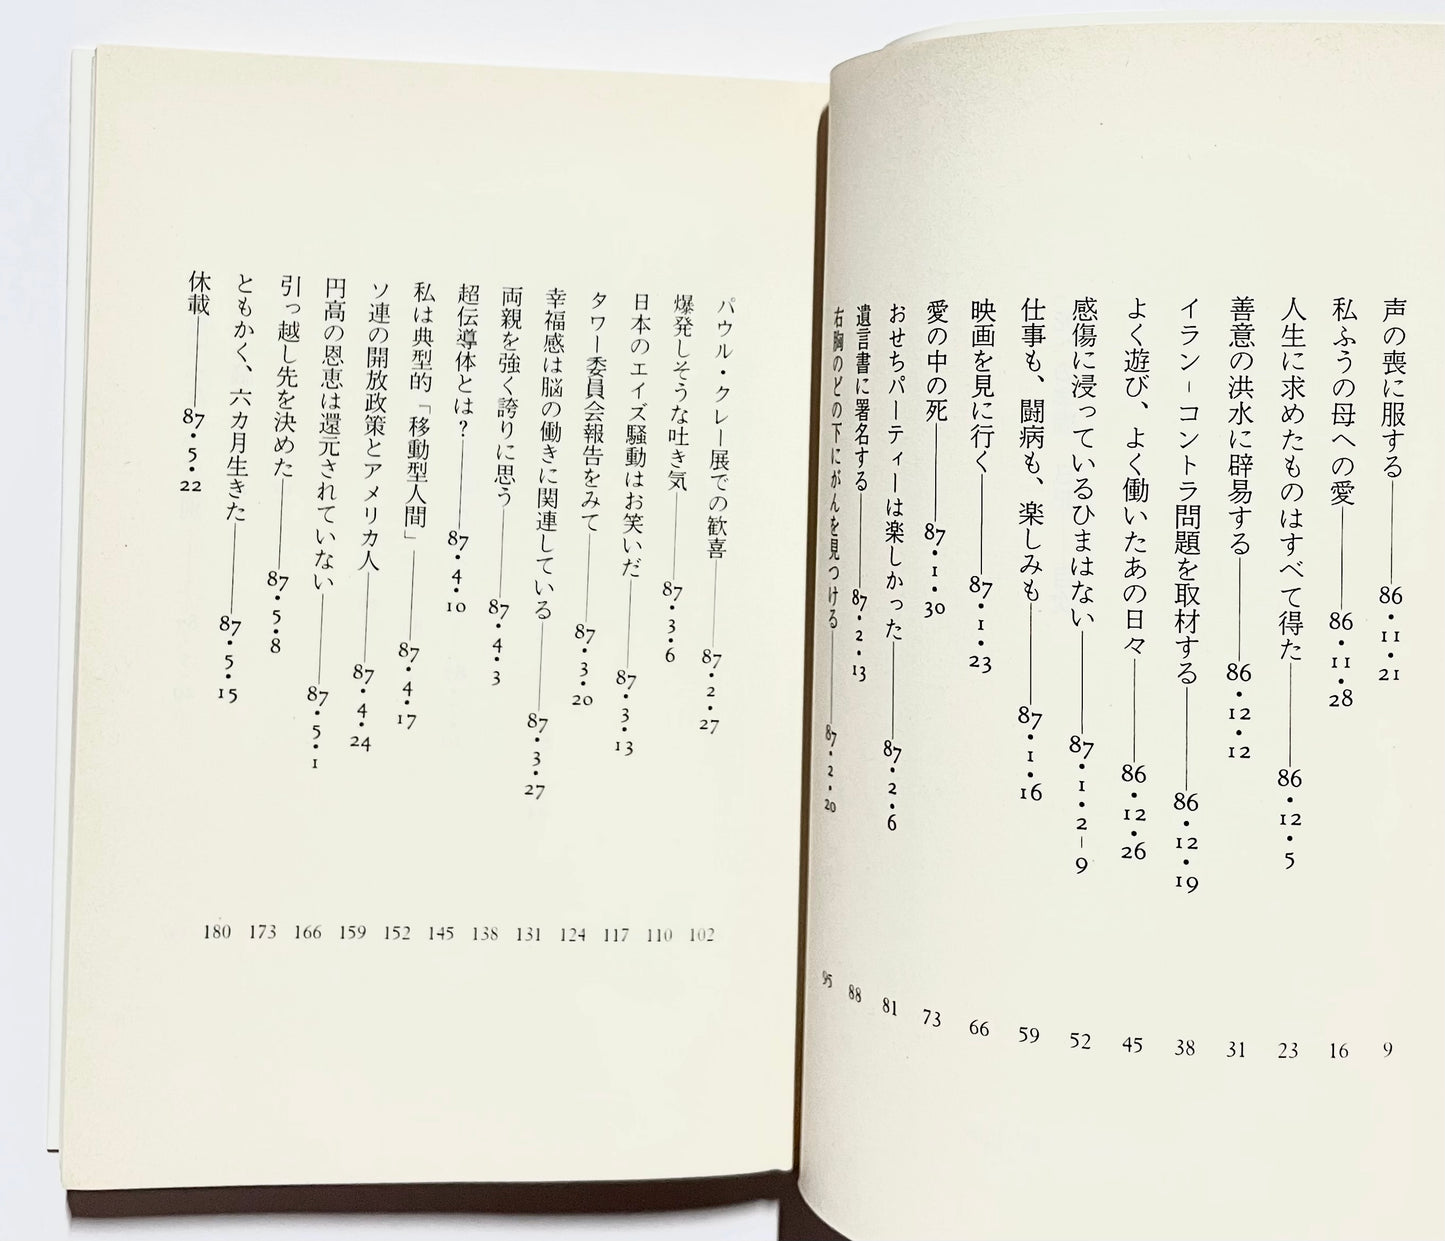 声の喪に服する――86・11・21 9
私ふうの母への愛――86・11・28 16
人生に求めたものはすべて得た――86・12・5 23
善意の洪水に辟易する――86・12・12 31
イラン-コントラ問題を取材する――86・12・19 38
よく遊び、よく働いたあの日々――86・12・26 45
感傷に浸っているひまはない――87・1・2-9 52
仕事も、闘病も、楽しみも――87・1・16 59
映画を見に行く――87・1・23 66
愛の中の死――87・1・30 73
おせちパーティーは楽しかった――87・2・6 81
遺言書に署名する――87・2・13 88
右胸のどの下にがんを見つける――87・2・20 95
パウル・クレー展での歓喜――87・2・27 102
爆発しそうな吐き気――87・3・6 110
日本のエイズ騒動はお笑いだ――87・3・13 117
タワー委員会報告をみて――87・3・20 124
幸福感は脳の働きに関連している――87・3・27 131
両親を強く誇りに思う――87・4・3 138
超伝導体とは?――87・4・10 145
私は典型的「移動型人間」――87・4・17 152
ソ連の開放政策とアメリカ人――87・4・24 159
円高の恩恵は還元されていない――87・5・1 166
引っ越し先を決めた――87・5・8 173
ともかく、六カ月生きた――87・5・15 180
休載――87・5・22